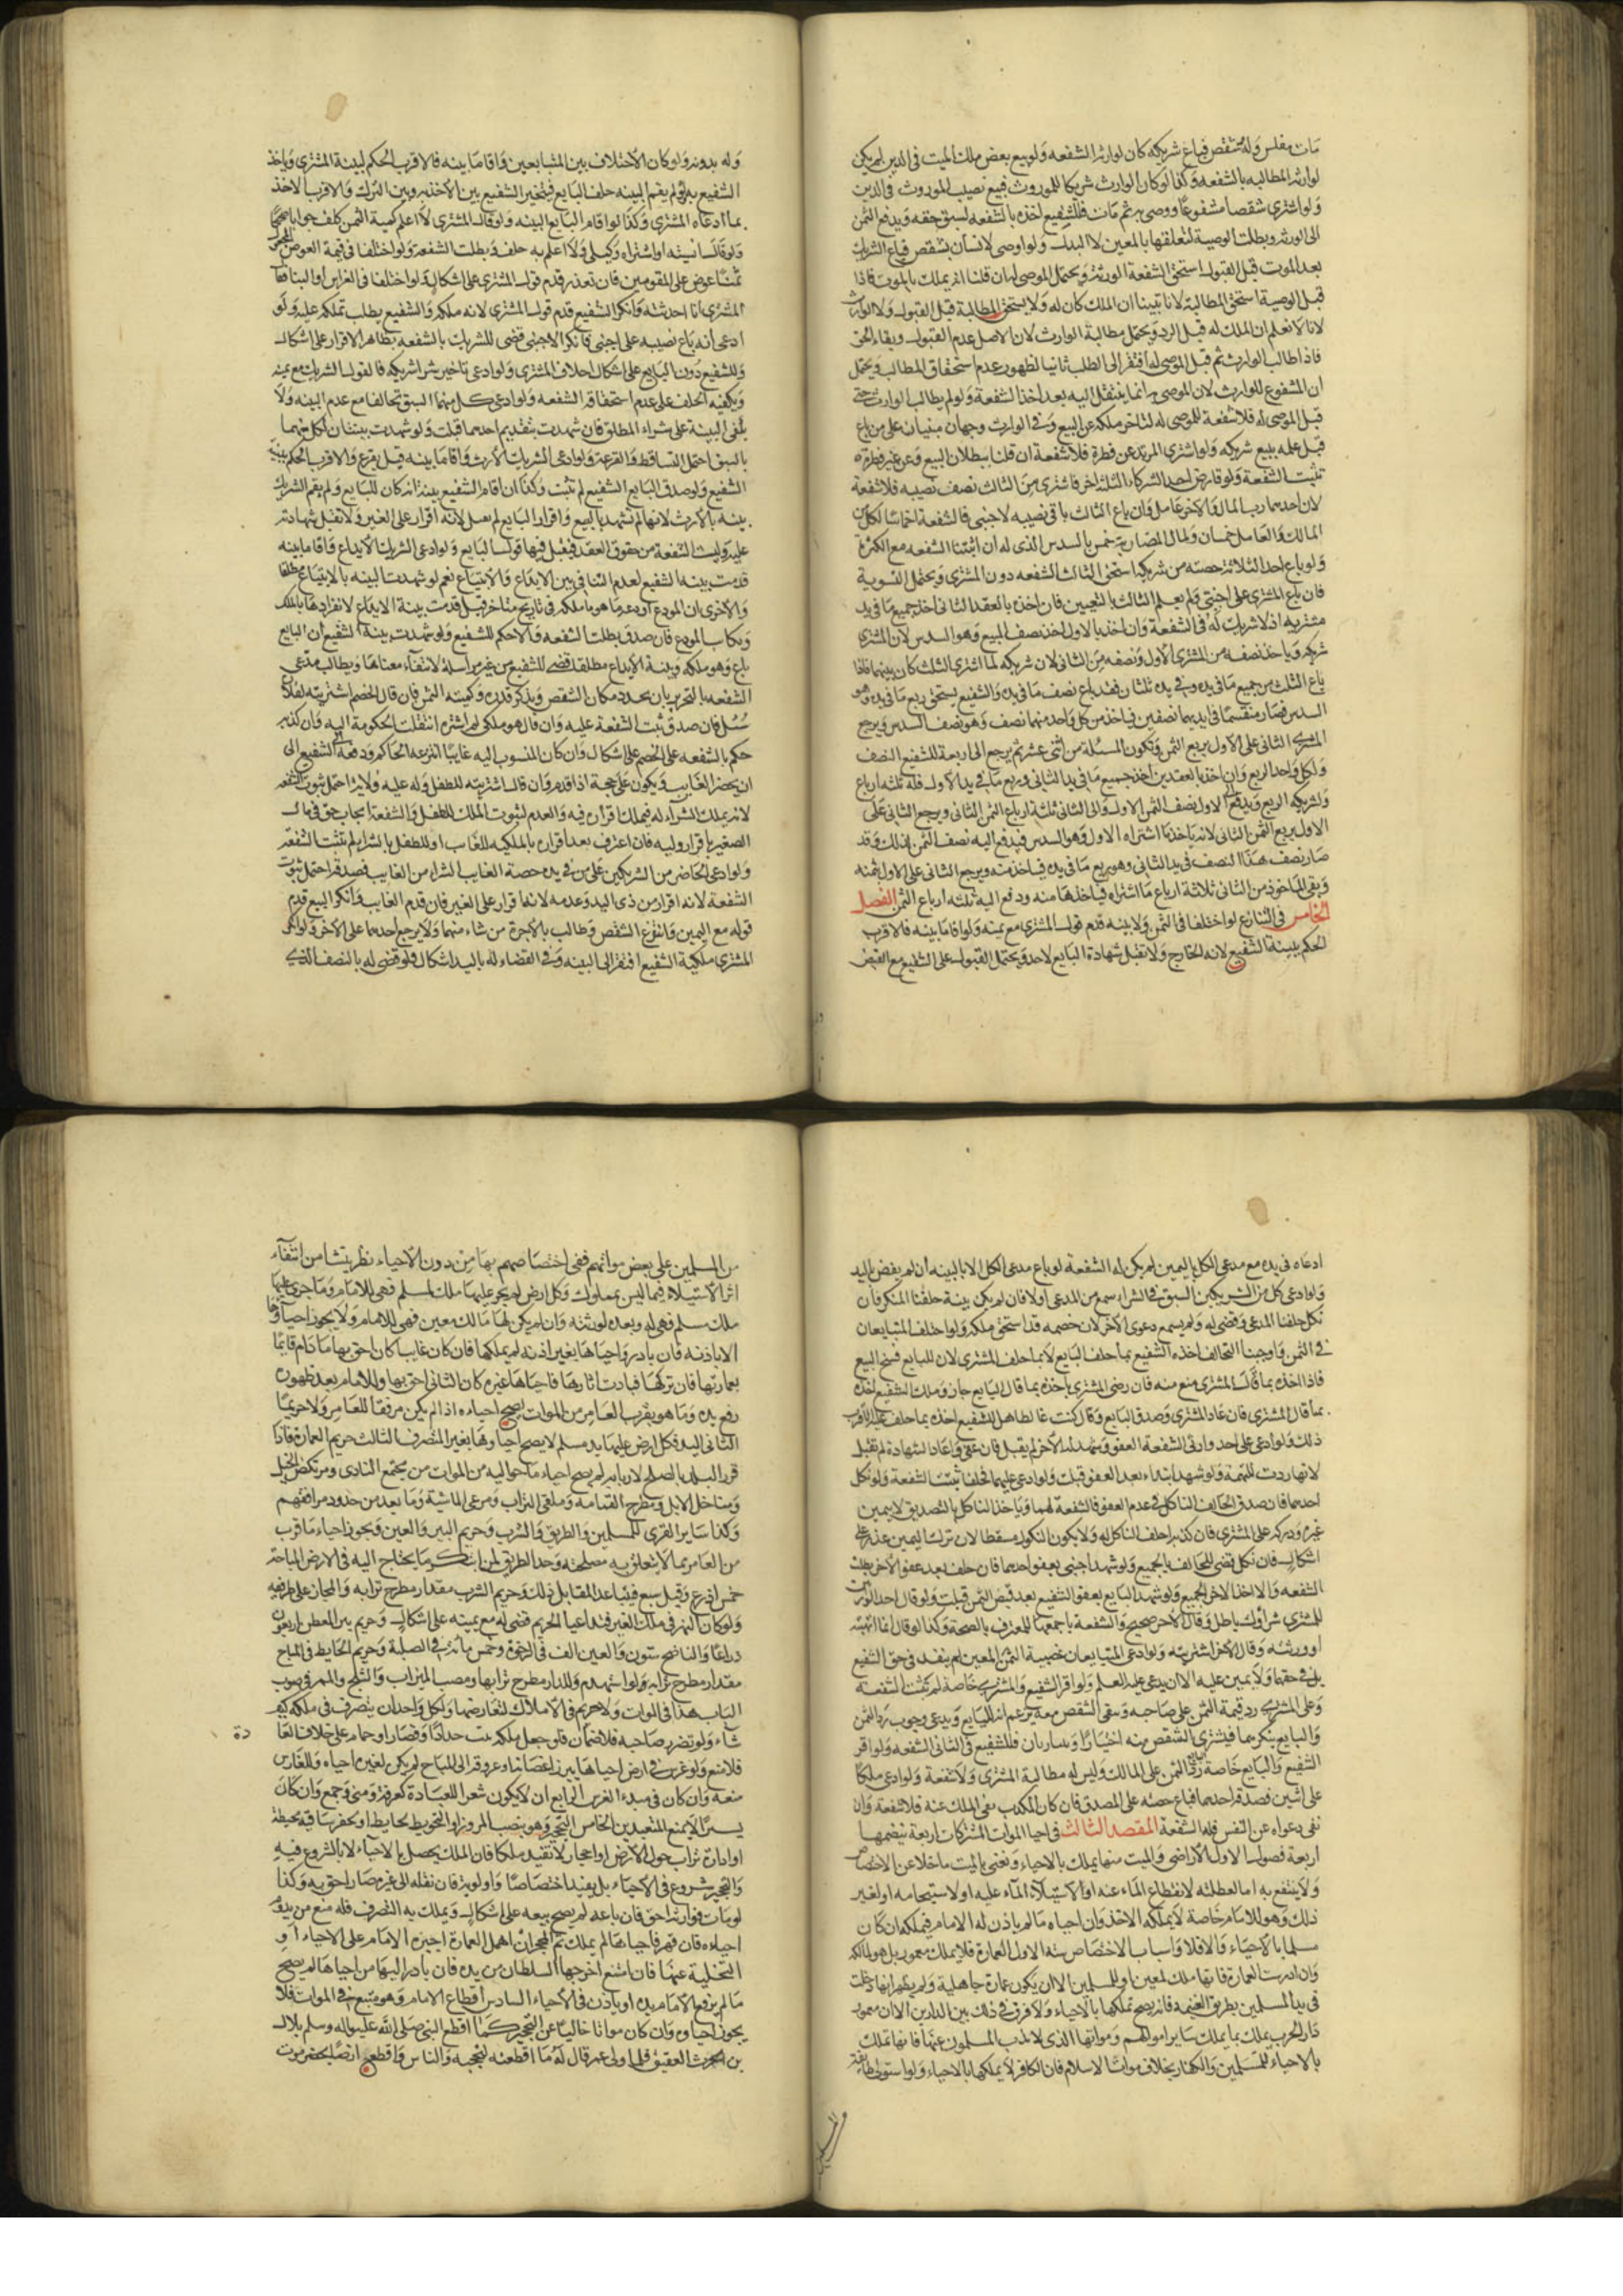 مات مفلس وله شقص فباع شريكه كان لوارثه الشفعه ولو بيع بعض ملك الميت في الدين لم يكن
لوارثه المطالبه بالشفعه وكذا لو كان الوارث شريكا للموروث فبيع نصيب الموروث في الدين
ولو اشترى شقصا مشفوعا ووصى به ثم مات فللشفيع اخذه بالشفعه لسبق حقه ويدفع الثمن
الى الورثه وبطلت الوصية لتعلقها بالمعين لا البدل ولو اوصى لانسان بشقص فباع الشريك
بعد الموت قبل القبول استحق الشفعة الورثة ويحتمل الموصى له ان قلنا انه يملك بالموت فاذا
قبل الوصية استحق المطالبة لانا تبينا ان الملك كان له ولا يستحق المطالبة قبل القبول ولا الوارث
لانا لا نعلم ان الملك له قبل الرد ويحتمل مطالبة الوارث لان الاصل عدم القبول وبقاء الحق
فاذا طالب الوارث ثم قبل الموصى له افتقر الى الطلب ثانيا لظهور عدم استحقاق المطالب ويحتمل
ان المشفوع للوارث لان الموصى به انما ينتقل اليه بعد اخذ الشفعة ولو لم يطالب الوارث حتى
قبل الموصى له فلا شفعة للموصى له لتاخر ملكه عن البيع وفي الوارث وجهان مبنيان على من باع
قبل علمه ببيع شريكه ولو اشترى المرتد عن فطرة فلا شفعة ان قلنا ببطلان البيع وعن غير فطرة
تثبت الشفعة ولو قارض احد الشركاء الثلثة اخر فاشترى من الثالث نصف نصيبه فلا شفعة
لان احدهما رب المال والاخر عامل فان باع الثالث باقي نصيبه لاجنبي فالشفعة اخماسا لكل من
المالك والعامل خمسان ولمال المضاربة خمس بالسدس الذي له ان اثبتنا الشفعه مع الكثرة
ولو باع احد الثلاثة حصته من شريكه استحق الثالث الشفعه دون المشتري ويحتمل التسوية
فان باع المشتري على اجنبي ولم يعلم الثالث بالبيعين فان اخذه بالعقد الثاني اخذ جميع ما في يد
مشتريه اذ لا شريك له في الشفعة وان اخذ بالاول اخذ نصف المبيع وهو السدس لان المشتري
شريكه وياخذ نصفه من المشتري الاول ونصفه من الثاني لان شريكه لما اشترى الثلث كان بينهما فاذا
باع الثلث من جميع ما في يده وفي يده ثلثان فقد باع نصف ما في يده والشفيع يستحق ربع ما في يده وهو
السدس فصار منقسما في ايديهما نصفين فياخذ من كل واحد منهما نصف وهو نصف السدس ويرجع
المشتري الثاني على الاول بربع الثمن وتكون المسئلة من اثني عشر ثم يرجع الى اربعة للشفيع النصف
ولكل واحد الربع وان اخذ بالعقدين اخذ جميع ما في يد الثاني وربع ما في يد الاول فله ثلثه ارباع
ولشريكه الربع ويدفع الى الاول نصف الثمن الاول والى الثاني ثلثة ارباع الثمن الثاني ويرجع الثاني على
الاول بربع الثمن الثاني لانه ياخذ ما اشتراه الاول وهو السدس فيدفع اليه نصف الثمن لذلك وقد
صار نصف هذا النصف في يد الثاني وهو ربع ما في يده فياخذ منه ويرجع الثاني على الاول بثمنه
وبقي الماخوذ من الثاني ثلاثة ارباع ما اشتراه فياخذها منه ودفع اليه ثلثه ارباع الثمن الفصل
الخامس في التنازع لو اختلفا في الثمن ولا بينه قدم قول المشتري مع يمينه ولو اقاما بينه فالاقرب
الحكم ببينة الشفيع لانه الخارج ولا تقبل شهادة البايع لاحد ويحتمل القبول على الشفيع مع القبض
وله بدونه ولو كان الاختلاف بين المتبايعين واقاما بينه فالاقرب الحكم لبينة المشتري وياخذ
الشفيع به ولو لم يقم البينه حلف البايع فيتخير الشفيع بين الاخذ به وبين الترك والاقرب الاخذ
بما ادعاه المشتري وكذا لو اقام البايع البينه ولو قال المشتري لا اعلم كمية الثمن كلف جوابا صحيحا
ولو قال نسيته او اشتراه وكيلي ولا اعلم به حلف وبطلت الشفعة ولو اختلفا في قيمة العوض المجعول
ثمنا عرض على المقومين فان تعذر قدم قول المشتري على اشكال ولو اختلفا في الغراس او البنا فقال
المشتري انا احدثته وانكر الشفيع قدم قول المشتري لانه ملكه والشفيع يطلب تملكه عليه ولو
ادعى انه باع نصيبه على اجنبي فانكر الاجنبي قضي للشريك بالشفعه بظاهر الاقرار على اشكال
وللشفيع دون البايع على اشكال احلاف المشتري ولو ادعى تاخير شرا شريكه فالقول قول الشريك مع يمينه
ويكفيه الحلف على عدم استحقاق الشفعه ولو ادعى كل منهما السبق تحالفا مع عدم البينه ولا
يكفي البينة على شراء المطلق فان شهدت بتقديم احدهما قبلت ولو شهدت بينتان لكل منهما
بالسبق احتمل التساقط والقرعة ولو ادعى الشريك الارث واقاما بينه قيل يقرع والاقرب الحكم ببينة
الشفيع ولو صدق البايع الشفيع لم تثبت وكذا ان اقام الشفيع بينة انه كان للبايع ولم يقم الشريك
بينه بالارث لانها لم تشهد بالبيع واقرار البايع لم يعمل لانه اقرار على الغير ولا تقبل شهادته
عليه وليست الشفعة من حقوق العقد فيقبل فيها قول البايع ولو ادعى الشريك الايداع واقاما بينه
قدمت بينه الشفيع لعدم التنافي بين الايداع والابتياع نعم لو شهدت البينه بالابتياع مطلقا
والاخرى ان المودع اودعه ما هو ملكه في تاريخ متاخر قيل قدمت بينة الايداع لانفرادها بالملك
ويكاتب المودع فان صدق بطلت الشفعه والا حكم للشفيع ولو شهدت بينة الشفيع ان البايع
باع وهو ملكه وبينة الايداع مطلقا قضي للشفيع من غير مراسلة لانتفاء معناها ويطالب مدعي
الشفعه بالتحرير بان يحدد مكان الشقص ويذكر قدره وكمية الثمن فان قال الخصم اشتريته لفلان
سئل فان صدق ثبت الشفعة عليه وان قال هو ملكي لم اشتره انتقلت الحكومة اليه وان كذبه
حكم بالشفعه على الخصم على اشكال وان كان المنسوب اليه غايبا انتزعه الحاكم ودفعه الى الشفيع الى
ان يحضر الغايب ويكون على حجة اذا قدم وان قال اشتريته للطفل وله عليه ولاية احتمل ثبوت الشفعه
لانه يملك الشراء له فيملك اقراره فيه والعدم لثبوت الملك للطفل والشفعة ايجاب حق في مال
الصغير باقرار وليه فان اعترف بعد اقراره بالملكيه للغايب او للطفل بالشراء لم تثبت الشفعه
ولو ادعى الحاضر من الشريكين على من في يده حصة الغايب الشراء من الغايب فصدقه احتمل ثبوت
الشفعة لانه اقرار من ذي اليد وعدمه لانه اقرار على الغير فان قدم الغايب وانكر البيع قدم
قوله مع اليمين وانتزع الشقص وطالب بالاجرة من شاء منهما ولا يرجع احدهما على الاخر ولو انكر
المشتري ملكية الشفيع افتقر الى البينه وفي القضاء له باليد اشكال فلو قضي له بالنصف الذي
ادعاه في يده مع مدعي الكل باليمين لم يكن له الشفعة لو باع مدعي الكل الا بالبينه ان لم يقض باليد
ولو ادعى كل من الشريكين السبق في الشراء سمع من المدعي اولا فان لم يكن بينة حلفنا المنكر فان
نكل حلفنا المدعي وقضي له ولم يسمع دعوى الاخر لان خصمه قد استحق ملكه ولو اختلف المتبايعان
في الثمن واوجبنا التحالف اخذه الشفيع بما حلف البايع لا بما حلف المشتري لان للبايع فسخ البيع
فاذا اخذه بما قال المشتري منع منه فان رضي المشتري باخذه بما قال البايع جاز وملك الشفيع اخذه
بما قال المشتري فان عاد المشتري وصدق البايع وقال كنت غالطا هل للشفيع اخذه بما حلف عليه الاقرب
ذلك ولو ادعى على احد وارثي الشفعة العفو وشهد له الاخر لم يقبل فان عفى واعاد الشهادة لم تقبل
لانها ردت للتهمة ولو شهد ابتداء بعد العفو قبلت ولو ادعى عليهما فحلفا ثبتت الشفعة ولو نكل
احدهما فان صدق الحالف الناكل في عدم العفو فالشفعة لهما وياخذ الناكل بالتصديق لا بيمين
غيره ودركه على المشتري فان كذبه احلف الناكل له ولا يكون النكول مسقطا لان ترك اليمين عذر على
اشكال فان نكل قضي للحالف بالجميع ولو شهد اجنبي بعفو احدهما فان حلف بعد عفو الاخر بطلت
الشفعه والا اخذ الاخر الجميع ولو شهد البايع بعفو الشفيع بعد قبض الثمن قبلت ولو قال احد الوارثين
للمشتري شراؤك باطل وقال الاخر صحيح والشفعة باجمعها للمعترف بالصحة وكذا لو قال انما اتهبته
او ورثته وقال الاخر اشتريته ولو ادعى المتبايعان غصبية الثمن المعين لم ينفذ في حق الشفيع
بل في حقهما ولا يمين عليه الا ان يدعى عليه العلم ولو اقر الشفيع والمشتري خاصة لم تثبت الشفعة
وعلى المشتري رد قيمة الثمن على صاحبه ويبقى الشقص معه يزعم انه للبايع ويدعي وجوب رد الثمن
والبايع ينكرهما فيشتري الشقص منه اختيارا ويتباريان فللشفيع في الثاني الشفعه ولو اقر
الشفيع والبايع خاصة رد البايع الثمن على المالك وليس له مطالبة المشتري ولا شفعة ولو ادعى ملكا
على اثنين فصدقه احدهما فباع حصته على المصدق فان كان المكذب نفى الملك عنه فلا شفعة وان
نفى دعواه عن نفسه فله الشفعة المقصد الثالث في احيا الموات المشتركات اربعة تتضمنها
اربعة فصول الاول الاراضي والميت منها يملك بالاحياء ونعني بالميت ما خلا عن الاختصاص
ولا ينتفع به اما لعطلته لانقطاع الماء عنه او لاستيلاء الماء عليه او لاستيجامه او لغير
ذلك وهو للامام خاصة لا يملكه الاخذ وان احياه ما لم ياذن له الامام فيملكه ان كان
مسلما بالاحياء والا فلا واسباب الاختصاص ستة الاول العمارة فلا يملك معمور بل هو لمالكه
وان اندرست العمارة فانها ملك لمعين او للمسلمين الا ان يكون عمارة جاهلية ولم يظهر انها دخلت
في يد المسلمين بطريق الغنيمة فانه يصح تملكها بالاحياء ولا فرق في ذلك بين الدارين الا ان معمور
دار الحرب يملك بما يملك ساير اموالهم ومواتها الذي لا يذب المسلمون عنها فانها تملك
بالاحياء للمسلمين والكفار بخلاف موات الاسلام فان الكافر لا يملكها بالاحياء ولو استولى طائفة
من المسلمين على بعض مواتهم ففي اختصاصهم بها من دون الاحياء نظر ينشا من انتفاء
اثر الاستيلاء فيما ليس بمملوك وكل ارض لم يجر عليها ملك لمسلم فهي للامام وما جرى عليها
ملك مسلم فهي له وبعده لورثته وان لم يكن لها مالك معين فهي للامام ولا يجوز احياؤها
الا باذنه فان بادر واحياها بغير اذنه لم يملكها فان كان غايبا كان احق بها ما دام قايما
بعمارتها فان تركها فبادت اثارها فاحياها غيره كان الثاني احق بها وللامام بعد ظهوره
رفع يده وما هو بقرب العامر من الموات يصح احياءه اذا لم يكن مرفقا للعامر ولا حريما
الثاني اليد فكل ارض عليها يد مسلم لا يصح احياوها بغير المتصرف الثالث حريم العمارة فاذا
قرر البلد بالصلح لاربابه لم يصح احياء ما حواليه من الموات من مجتمع النادي ومرتكض الخيل
ومناخ الابل ومطرح القمامة وملقى التراب ومرعى الماشية وما يعد من حدود مرافقهم
وكذا ساير القرى للمسلمين والطريق والشرب وحريم البير والعين ويجوز احياء ما قرب
من العامر مما لا يتعلق به مصلحته وحد الطريق لمن ابتكر ما يحتاج اليه في الارض المباحة
خمس اذرع وقيل سبع فيتباعد المقابل ذلك وحريم الشرب مقدار مطرح ترابه والمجاز على طرفيه
ولو كان النهر في ملك الغير فتداعيا الحريم قضي له مع يمينه على اشكال وحريم بير المعطن اربعون
ذراعا والناضح ستون والعين الف في الرخوة وخمس مائة في الصلبة وحريم الحايط في المباح
مقدار مطرح ترابه لو استهدم وللدار مطرح ترابها ومصب الميزاب والثلج والممر في صوب
الباب هذا في الموات ولا حريم في الاملاك لتعارضها ولكل واحد ان يتصرف في ملكه كيف
شاء ولو تضرر صاحبه فلا ضمان فلو جعل ملكه بيت حداد او قصار او حمام على خلاف العا
دة
فلا منع ولو غرس في ارض احياها ما يبرز اغصانه او عروقه الى المباح لم يكن لغيره احياه وللغارس
منعه وان كان في مبدء الغرس الرابع ان لا يكون مشعرا للعبادة كعرفة ومنى وجمع وان كان
يسيرا لا يمنع المتعبدين الخامس التحجير وهو بنصب المروز او التحويط بحايط او بحفر ساقية محيطة
او ادارة تراب حول الارض او احجار لا تفيد ملكا فان الملك يحصل بالاحياء لا بالشروع فيه
والتحجير شروع في الاحياء بل يفيد اختصاصا واولوية فان نقله الى غيره صار احق به وكذا
لو مات فوارثه احق فان باعه لم يصح بيعه على اشكال ويملك به التصرف فله منع من يروم
احياءه فان قهره فاحياها لم يملك ثم المحجر ان اهمل العمارة اجبره الامام على الاحياء او
التخلية عنها فان امتنع اخرجها السلطان من يده فان بادر اليها من احياها لم يصح
ما لم يرفع الامام يده او ياذن في الاحياء السادس اقطاع الامام وهو متبع في الموات فلا
يجوز احياوه وان كان مواتا خاليا عن التحجير كما اقطع النبي صلى الله عليه واله وسلم بلال
بن الحرث العقيق فلما ولي عمر قال له ما اقطعته لتحجبه والناس واقطع ارضا بحضرموت